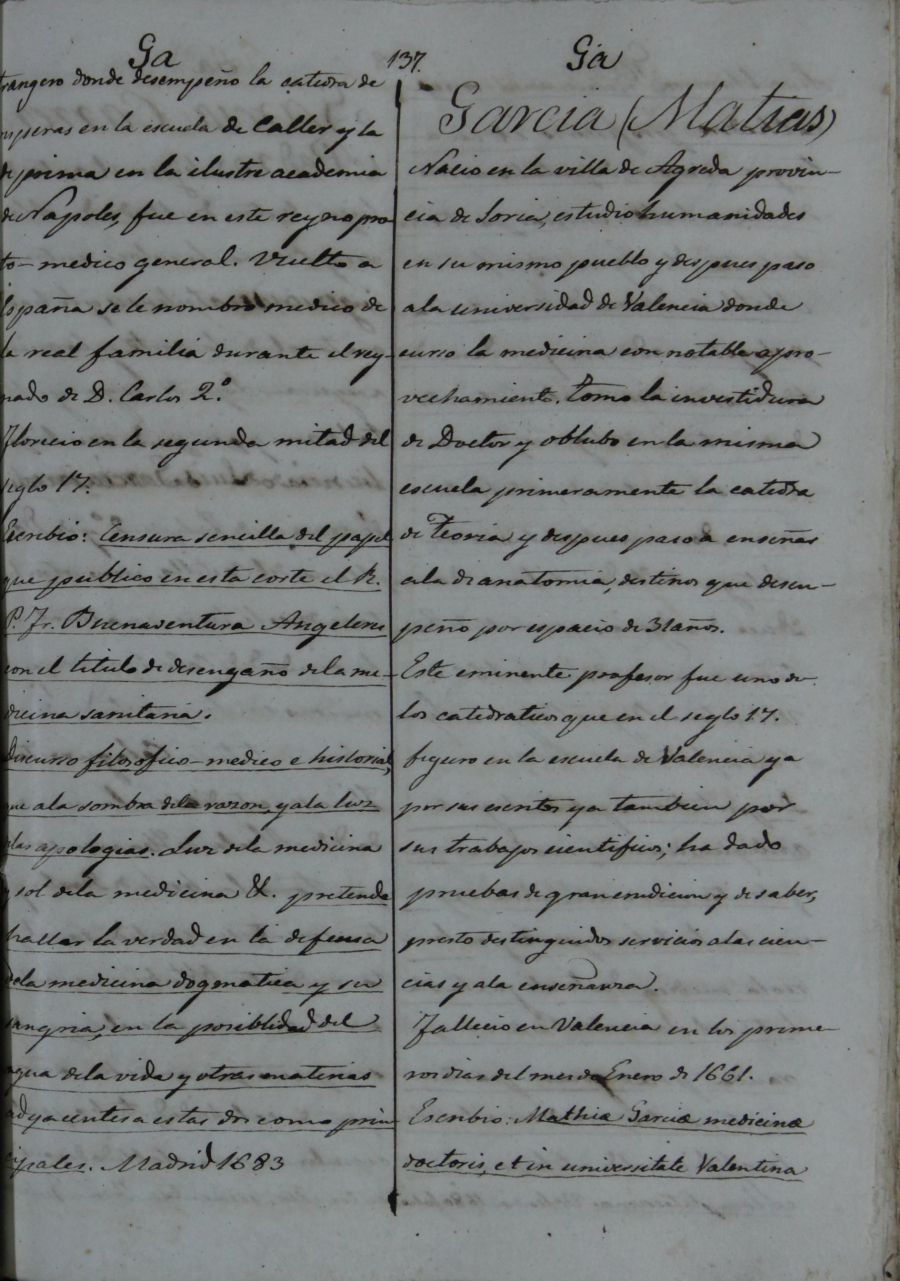 Ga
137.
Ga
trangero donde desempeño la catedra de
visperas en la escuela de Caller y la
de prima en la ilustre academia
de Napoles, fue en este reyno pro
to-medico general. Vuelto a
España se le nombro medico de
la real familia durante el rey-
nado de D. Carlos 2.º
Florecio en la segunda mitad del
siglo 17.
Escribio: Censura sencilla del papel
que publico en esta corte el R.
P. Fr. Buenaventura Angeleres
con el titulo de desengaño de la me-
dicina sanitaria.
Discurso filosofico-medico e historial,
que a la sombra de la razon, y a la luz
de las apologias. Luz de la medicina
y sol de la medicina &. pretende
hallar la verdad en la defensa
de la medicina dogmatica y su
sangria, en la posiblidad del
agua de la vida y otras materias
adyacentes a estas dos como prin
cipales. Madrid 1683
Garcia (Matias)
Nacio en la villa de Agreda provin-
cia de Soria, estudio humanidades
en su mismo pueblo y despues paso
a la universidad de Valencia donde
curso la medicina con notable apro-
vechamiento. Tomo la investidura
de Doctor y obtubo en la misma
escuela primeramente la catedra
de Teoria y despues paso a enseñar
a la de anatomia, destinos que desem-
peño por espacio de 31 años.
Este eminente profesor fue uno de
los catedraticos que en el siglo 17.
figuro en la escuela de Valencia ya
por sus escritos ya tambien por
sus trabajos cientificos; ha dado
pruebas de gran erudicion y de saber,
presto destinguidos servicios a las cien-
cias y a la enseñanza.
Fallecio en Valencia en los prime-
ros dias del mes de Enero de 1661.
Escribio: Mathiæ Garciæ medicinæ
doctoris, et in universitate Valentina